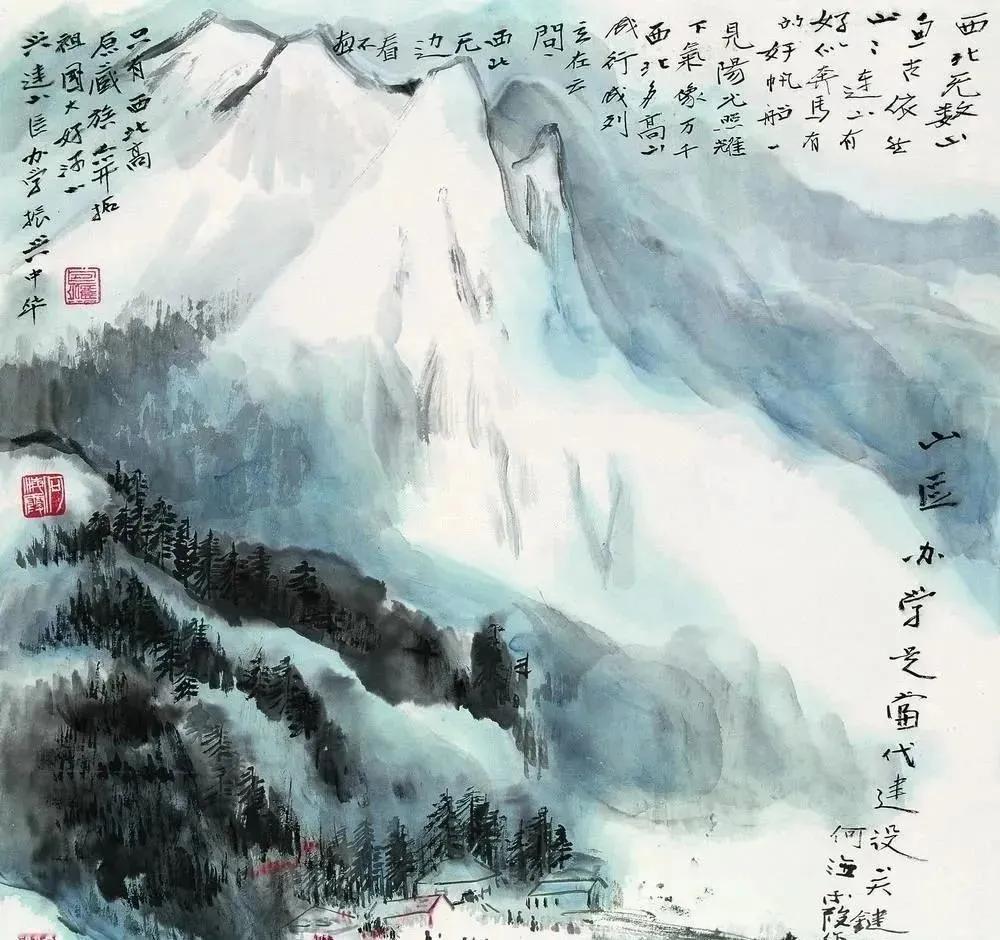 西北无数山
亘古依然
山山连山有
好似奔马有
的好帆船一
見陽光照耀
下氣像万千
西北多高山
成行成列
立在云
間
西北
无
边
看
不
只有西北高
原藏族
开拓
祖國大好河山
兴建山区办学振兴中华
山区办学是當代建设关鍵
何海霞